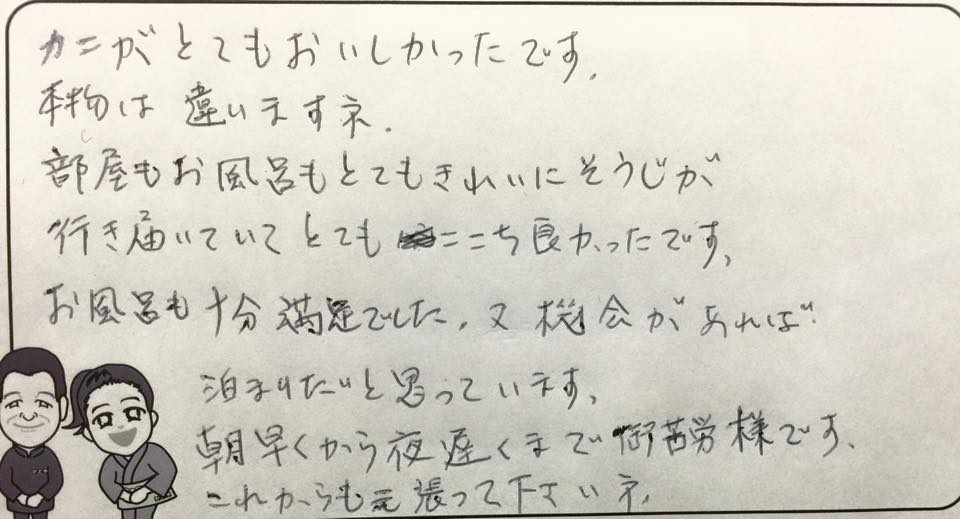 カニがとてもおいしかったです。
本物は違いますネ.
部屋もお風呂もとてもきれいにそうじが
行き届いていてとてもここち良かったです。
お風呂も十分満足でした。又機会があれば
泊まりたいと思っています。
朝早くから夜遅くまで御苦労様です。
これからも元張って下さいネ。